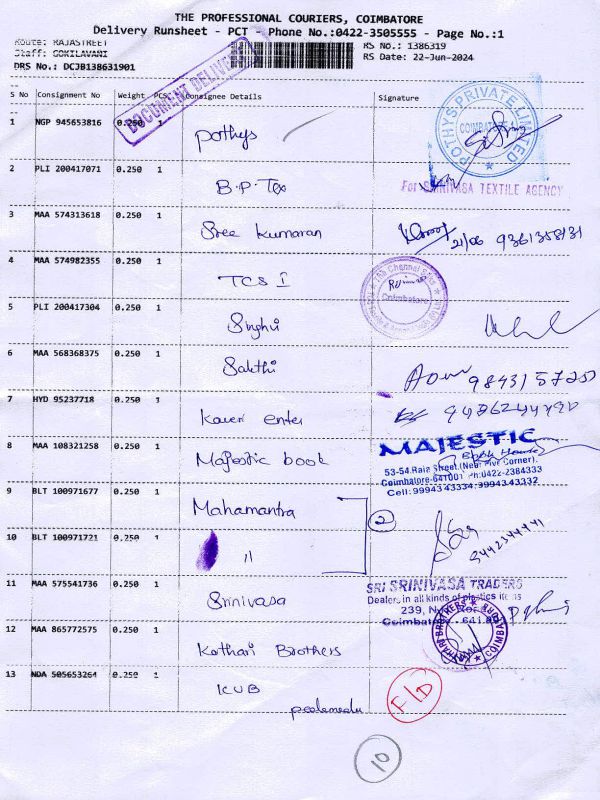 THE PROFESSIONAL COURIERS, COIMBATORE
Delivery Runsheet - PCT - Phone No.:0422-3505555 - Page No.:1
Route: RAJASTREET
RS No.: 1386319
Staff: GOKILAVANI
RS Date: 22-Jun-2024
DRS No.: DCJB138631901
DOCUMENT DELIVERY
S No Consignment No Weight PCS Consignee Details Signature
1 NGP 945653816 0.250 1 pothys
POTHYS PRIVATE LIMITED COIMBATORE
2 PLI 200417071 0.250 1 B.P.Tex
For SRINIVASA TEXTILE AGENCY
3 MAA 574313618 0.250 1 Sree Kumaran
21/06 9361358131
4 MAA 574982355 0.250 1 TCS I
Coimbatore
5 PLI 200417304 0.250 1 Singhvi
6 MAA 568368375 0.250 1 Sakthi
7 HYD 95237718 0.250 1 Kaveri enter
8 MAA 108321258 0.250 1 Majestic book
MAJESTIC
Book House
53-54.Raja Street.(Near Five Corner).
Coimbatore-641001 Ph:0422-2384333
Cell: 9994343334:9994343332
9 BLT 100971677 0.250 1 Mahamantra
2
10 BLT 100971721 0.250 1 11
9442344441
11 MAA 575541736 0.250 1 Srinivasa
SRI SRINIVASA TRADERS
Dealers in all kinds of plastics items
239,
Coimbatore - 641
12 MAA 865772575 0.250 1 Kothari Brothers
KOTHARI BROTHERS COIMBATORE
13 NDA 505653264 0.250 1 ICUB
peelamedu
F/D
10